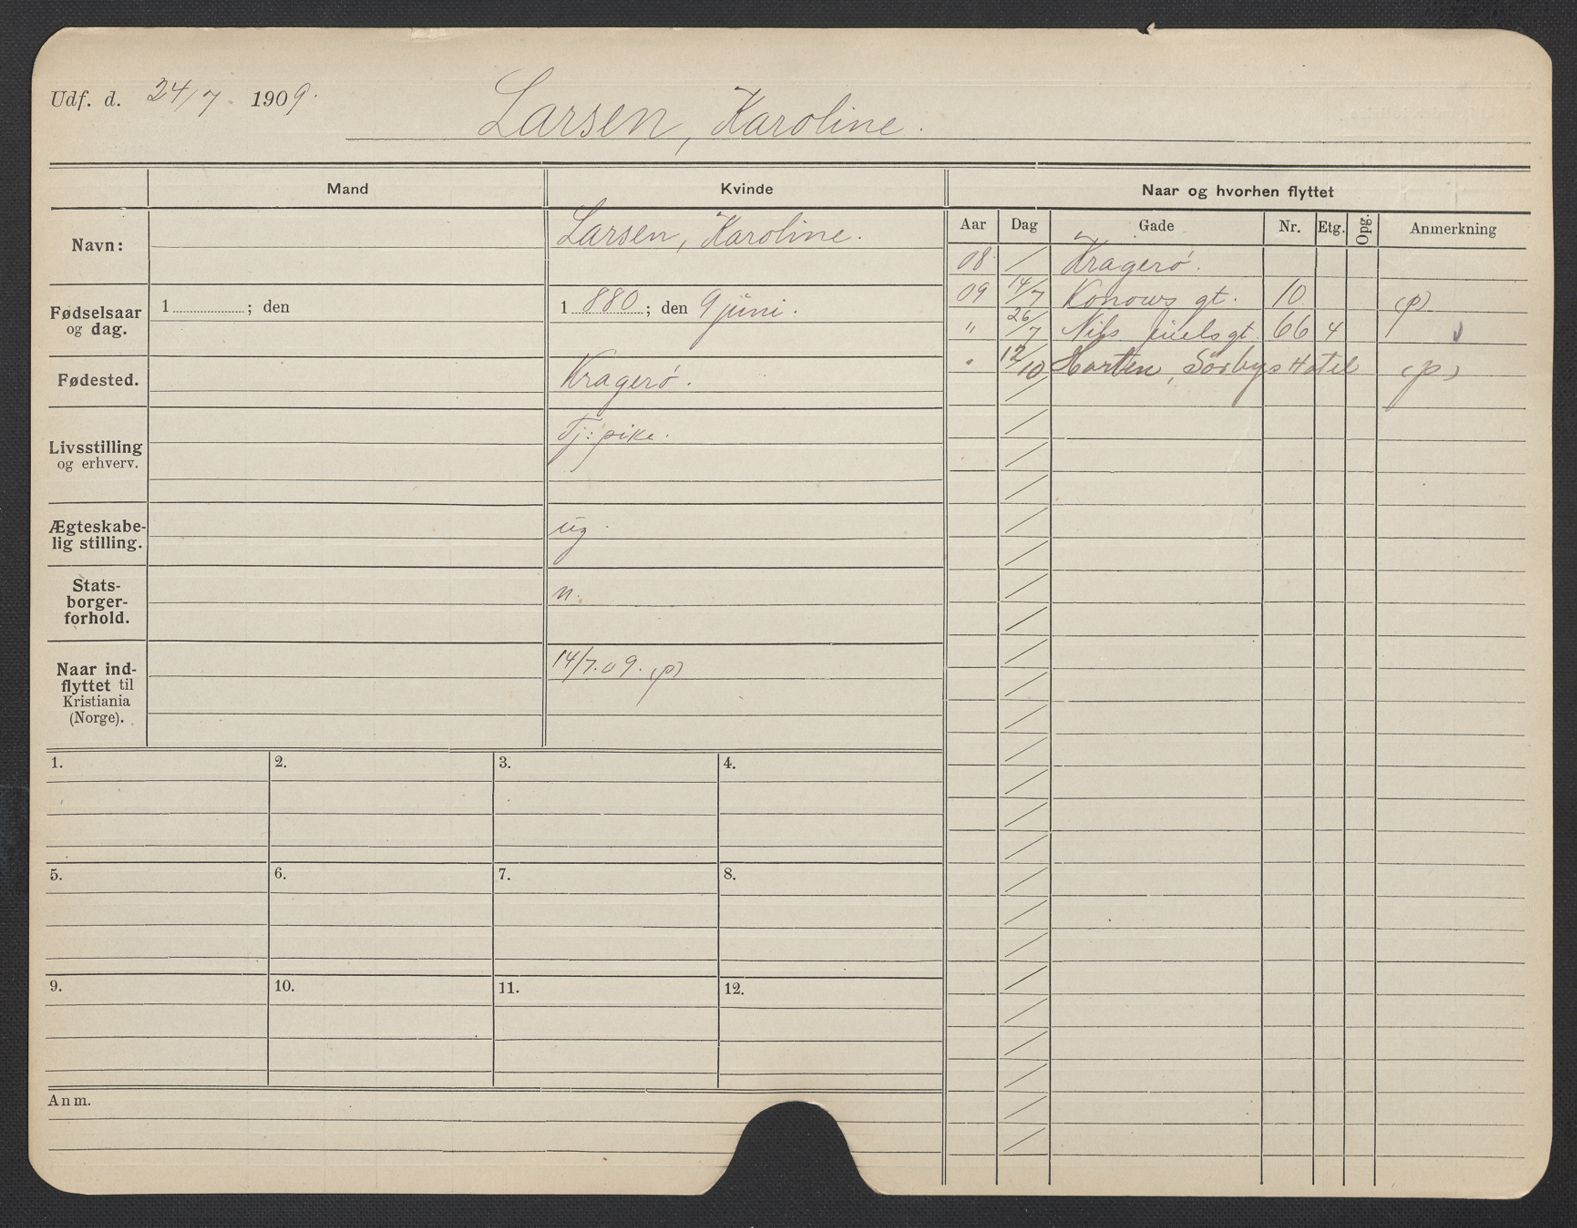 Udf. d. 24/7 1909.
Larsen, Karoline.
Mand
Kvinde
Naar og hvorhen flyttet
Navn:
Larsen, Karoline.
Aar Dag Gade Nr. Etg. Opg. Anmerkning
08 / Kragerø.
09 14/7 Konows gt. 10 (p)
" 26/7 Nils juels gt. 66 4
" 12/10 Horten, Sörbys Hotel (p)
Fødselsaar og dag.
1 ; den
1 880 ; den 9 juni.
Fødested.
Kragerø.
Livsstilling og erhverv.
Tj: pike.
Ægteskabe-
lig stilling.
ug.
Stats-
borger-
forhold.
n.
Naar ind-
flyttet til
Kristiania
(Norge).
14/7.09. (p)
1. 2. 3. 4.
5. 6. 7. 8.
9. 10. 11. 12.
Anm.